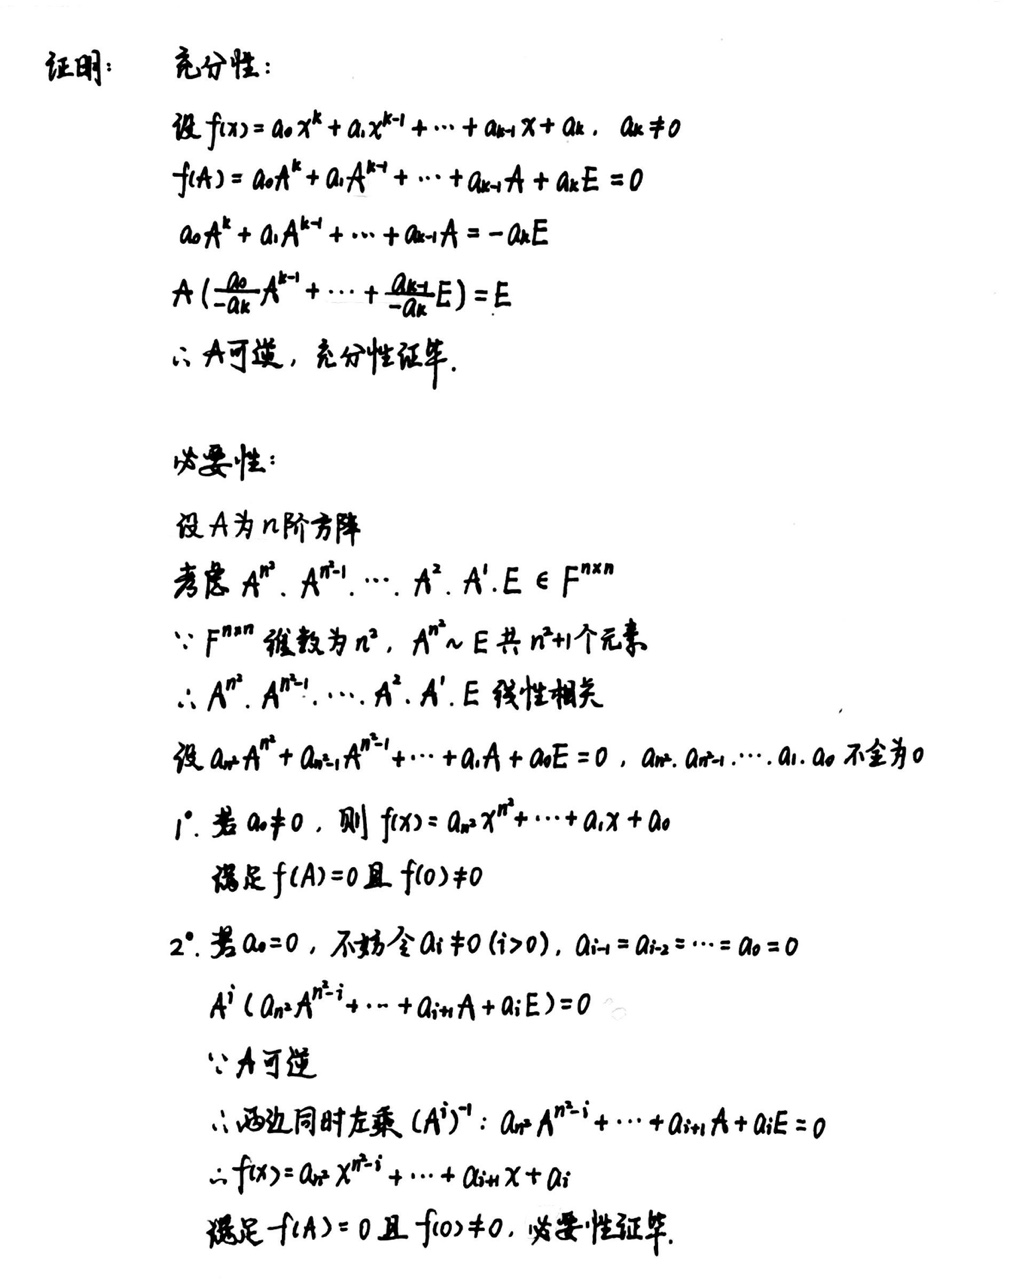 证明: 充分性:
设 f(x) = a₀x^k + a₁x^{k-1} + ⋯ + a_{k-1}x + a_k, a_k ≠ 0
f(A) = a₀A^k + a₁A^{k-1} + ⋯ + a_{k-1}A + a_kE = 0
a₀A^k + a₁A^{k-1} + ⋯ + a_{k-1}A = -a_kE
A(\frac{a₀}{-a_k}A^{k-1} + ⋯ + \frac{a_{k-1}}{-a_k}E) = E
∴ A可逆, 充分性证毕.
必要性:
设A为n阶方阵
考虑 A^{n²}. A^{n²-1}. ⋯. A². A¹. E ∈ F^{n×n}
∵ F^{n×n} 维数为n², A^{n²} ~ E 共 n²+1个元素
∴ A^{n²}. A^{n²-1}. ⋯. A². A¹. E 线性相关
设 a_{n²}A^{n²} + a_{n²-1}A^{n²-1} + ⋯ + a₁A + a₀E = 0, a_{n²}. a_{n²-1}. ⋯. a₁. a₀ 不全为0
1°. 若 a₀ ≠ 0, 则 f(x) = a_{n²}x^{n²} + ⋯ + a₁x + a₀
满足 f(A) = 0 且 f(0) ≠ 0
2°. 若 a₀ = 0, 不妨令 a_i ≠ 0 (i>0), a_{i-1} = a_{i-2} = ⋯ = a₀ = 0
A^i (a_{n²}A^{n²-i} + ⋯ + a_{i+1}A + a_iE) = 0
∵ A可逆
∴ 两边同时左乘 (A^i)^{-1}: a_{n²}A^{n²-i} + ⋯ + a_{i+1}A + a_iE = 0
∴ f(x) = a_{n²}x^{n²-i} + ⋯ + a_{i+1}x + a_i
满足 f(A) = 0 且 f(0) ≠ 0, 必要性证毕.